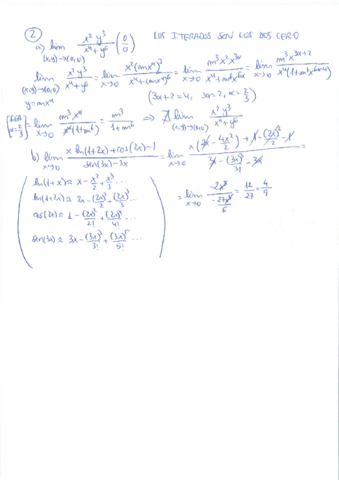 ② LOS ITERADOS SON LOS DOS CERO
a) lim (x,y)→(0,0) x² y³ / x⁴+y⁶ (0/0)
lim (x,y)→(0,0) y=mx^α x² y³ / x⁴+y⁶ = lim x→0 x²(mx^α)³ / x⁴+(mx^α)⁶ = lim x→0 m³ x² x^3α / x⁴+m⁶x^6α = lim x→0 m³ x^3α+2 / x⁴(1+m⁶x^6α-4)
(3α+2=4, 3α=2, α=2/3)
= lim x→0 m³ x⁴ / x⁴(1+m⁶) = m³ / 1+m⁶ ⇒ ∄ lim (x,y)→(0,0) x² y³ / x⁴+y⁶
b) lim x→0 x ln(1+2x)+cos(2x)-1 / sen(3x)-3x = lim x→0 x(2x - 4x²/2) + 1 - (2x)²/2 - 1 / 3x - (3x)³/3! - 3x =
ln(1+x) ≈ x - x²/2 + x³/3 ...
ln(1+2x) ≈ 2x - (2x)²/2 + (2x)³/3 ...
cos(2x) ≈ 1 - (2x)²/2! + (2x)⁴/4! ...
sen(3x) ≈ 3x - (3x)³/3! + (3x)⁵/5! ...
= lim x→0 -2x³ / -27x³/6 = 12/27 = 4/9